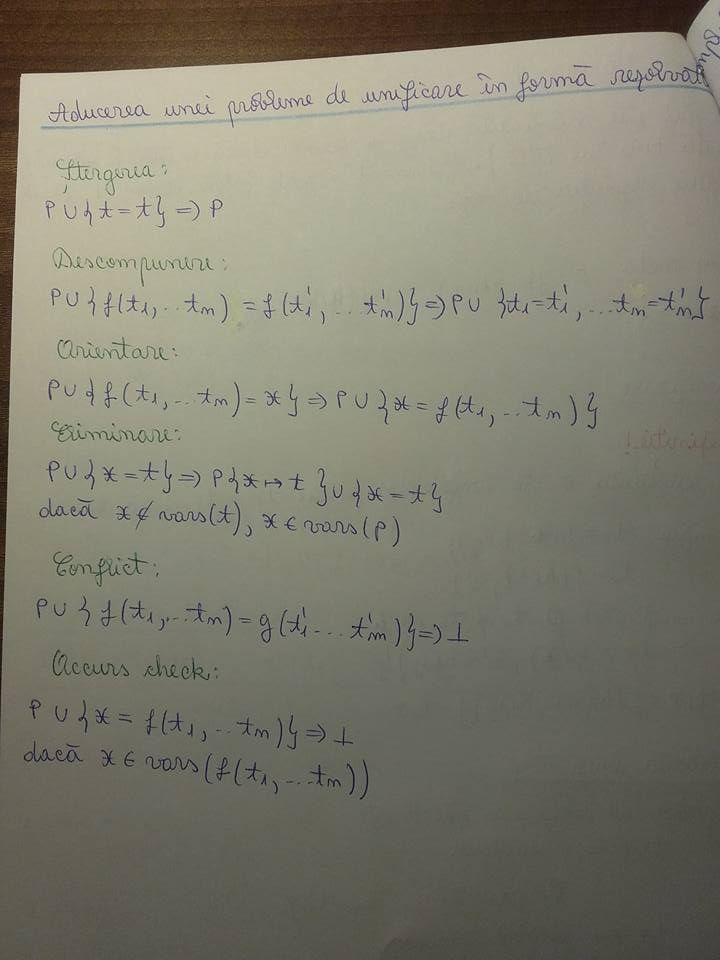 Aducerea unei probleme de unificare în formă rezolvat
Ștergerea:
P ∪ {t = t} => P
Descompunere:
P ∪ {f(t1, .. tn) = f(t1', ... tn')} => P ∪ {t1 = t1', ... tn = tn'}
Orientare:
P ∪ {f(t1, ... tn) = x} => P ∪ {x = f(t1, .. tn)}
Eliminare:
P ∪ {x = t} => P{x ↦ t} ∪ {x = t}
dacă x ∉ vars(t), x ∈ vars(P)
Conflict:
P ∪ {f(t1, ... tn) = g(t1' ... tm')} => ⊥
Occurs check:
P ∪ {x = f(t1, .. tn)} => ⊥
dacă x ∈ vars(f(t1, ... tn))